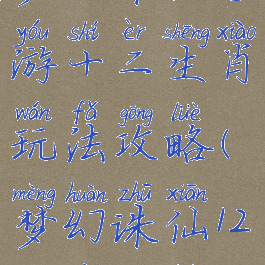 yóu shí èr shēng xiào
游十二生肖
wán fǎ gōng lüè
玩法攻略(
mèng huàn zhū xiān
梦幻诛仙12